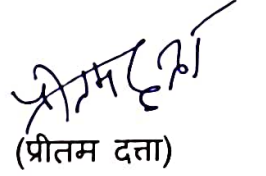 प्रीतम दत्ता
(प्रीतम दत्ता)